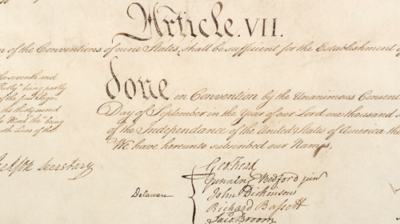 Article. VII.
of the Conventions of nine States, shall be sufficient for the Establishment of
done in Convention by the Unanimous Consent
Day of September in the Year of our Lord one thousand
of the Independance of the United States of America the
We have hereunto subscribed our Names,
Secretary
Delaware
Geo: Read
Gunning Bedford jun
John Dickinson
Richard Bassett
Jaco: Broom